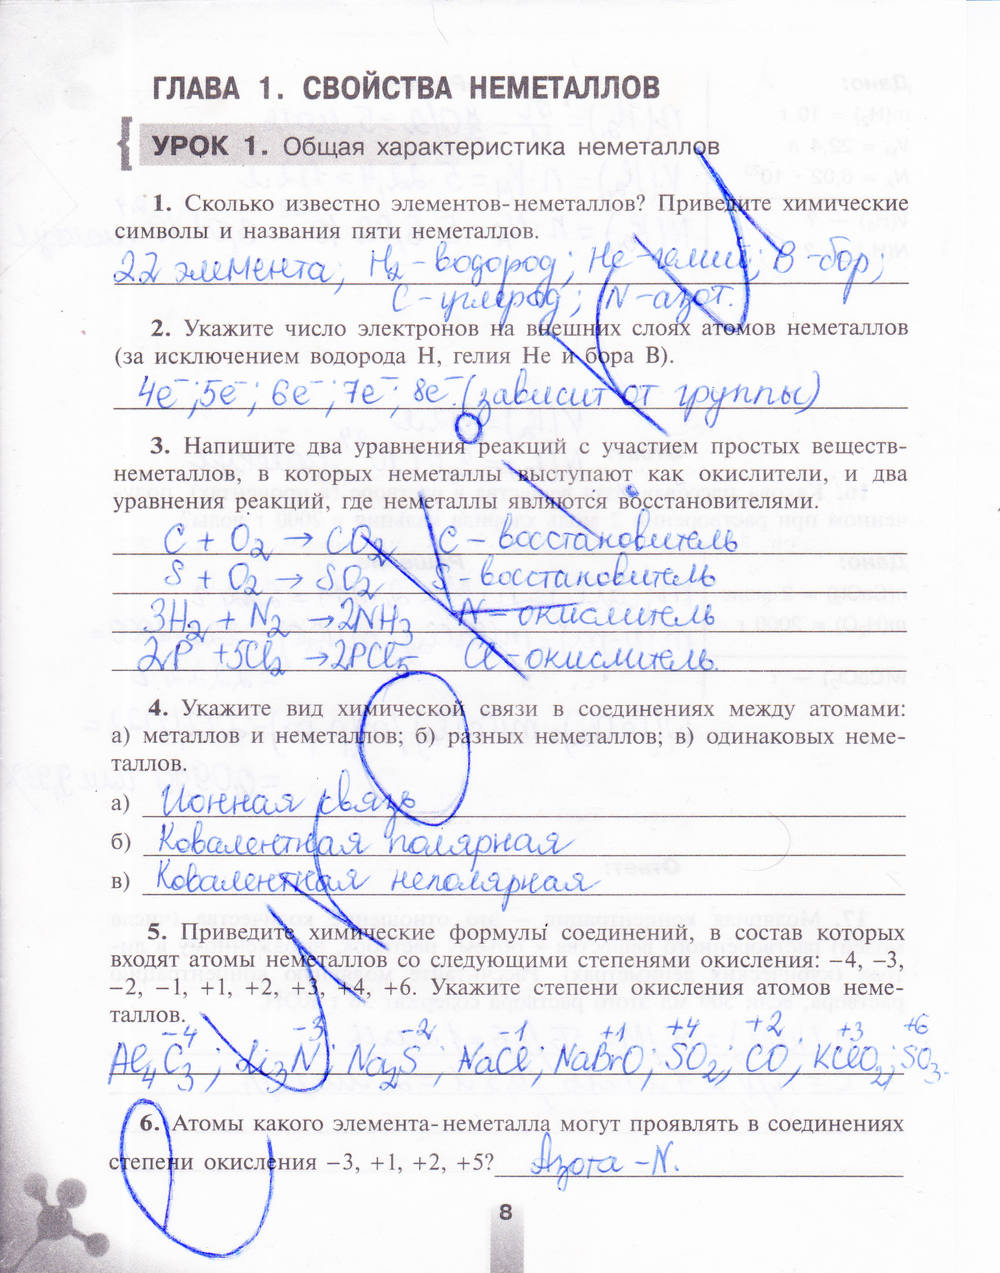 ГЛАВА 1. СВОЙСТВА НЕМЕТАЛЛОВ
УРОК 1. Общая характеристика неметаллов
1. Сколько известно элементов-неметаллов? Приведите химические
символы и названия пяти неметаллов.
22 элемента; H₂ - водород; He - гелий; B - бор;
C - углерод; N - азот.
2. Укажите число электронов на внешних слоях атомов неметаллов
(за исключением водорода H, гелия He и бора B).
4e⁻; 5e⁻; 6e⁻; 7e⁻; 8e⁻. (зависит от группы)
3. Напишите два уравнения реакций с участием простых веществ-
неметаллов, в которых неметаллы выступают как окислители, и два
уравнения реакций, где неметаллы являются восстановителями.
C + O₂ → CO₂ C - восстановитель
S + O₂ → SO₂ S - восстановитель
3H₂ + N₂ → 2NH₃ N - окислитель
2P + 5Cl₂ → 2PCl₅ Cl - окислитель.
4. Укажите вид химической связи в соединениях между атомами:
а) металлов и неметаллов; б) разных неметаллов; в) одинаковых неме-
таллов.
а) Ионная связь
б) Ковалентная полярная
в) Ковалентная неполярная
5. Приведите химические формулы соединений, в состав которых
входят атомы неметаллов со следующими степенями окисления: −4, −3,
−2, −1, +1, +2, +3, +4, +6. Укажите степени окисления атомов неме-
таллов.
−4 −3 −2 −1 +1 +4 +2 +3 +6
Al₄C₃; Li₃N; Na₂S; NaCl; NaBrO; SO₂; CO; KClO₂; SO₃.
6. Атомы какого элемента-неметалла могут проявлять в соединениях
степени окисления −3, +1, +2, +5? Азота - N.
8